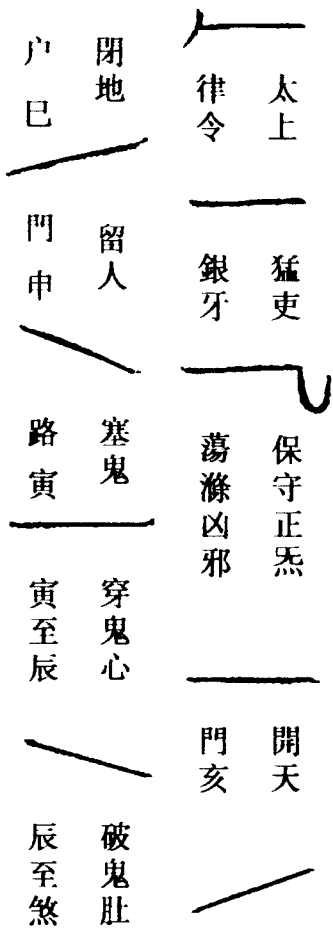 太上
律令
猛吏
銀牙
保守正炁
蕩滌凶邪
開天
門亥
閉地
户巳
留人
門申
塞鬼
路寅
穿鬼心
寅至辰
破鬼肚
辰至煞